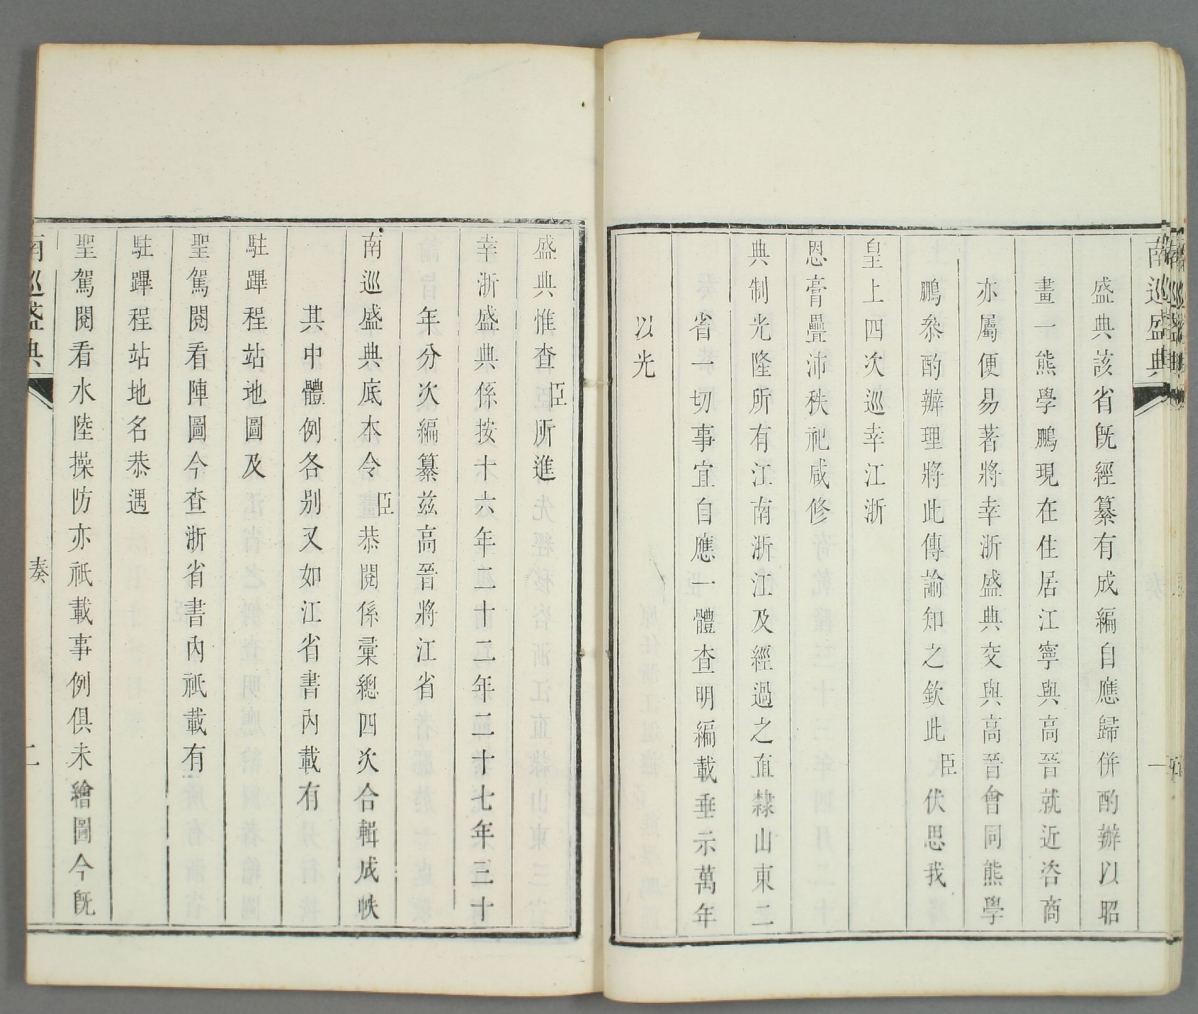 南巡盛典
一
盛典該省旣經纂有成編自應歸併酌辦以昭
畫一熊學鵬現在住居江寧與高晉就近咨商
亦屬便易著將幸浙盛典交與高晉會同熊學
鵬叅酌辦理將此傳諭知之欽此臣伏思我
皇上四次巡幸江浙
恩膏疊沛秩祀咸修
典制光隆所有江南浙江及經過之直隸山東二
省一切事宜自應一體查明編載垂示萬年
以光
盛典惟查臣所進
幸浙盛典係按十六年二十二年二十七年三十
年分次編纂兹高晉將江省
南巡盛典底本令臣恭閱係彙總四次合輯成帙
其中體例各別又如江省書內載有
駐蹕程站地圖及
聖駕閱看陣圖今查浙省書內祇載有
駐蹕程站地名恭遇
聖駕閱看水陸操防亦祇載事例俱未繪圖今旣
南巡盛典
奏
二